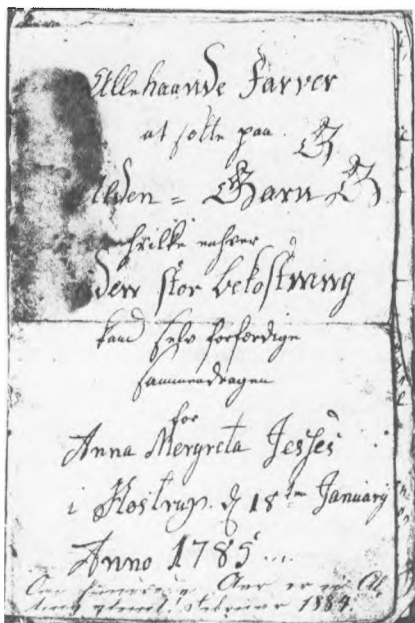 Allehaande Farver
at sette paa
Ulden = Garn
hvilke enhver
uden stor bekostning
kand selv forferdige
sammendragen
for
Anna Mergreta Jesses
i Hostrup d 18ten January
Anno 1785
Aar er
Februar 1884.